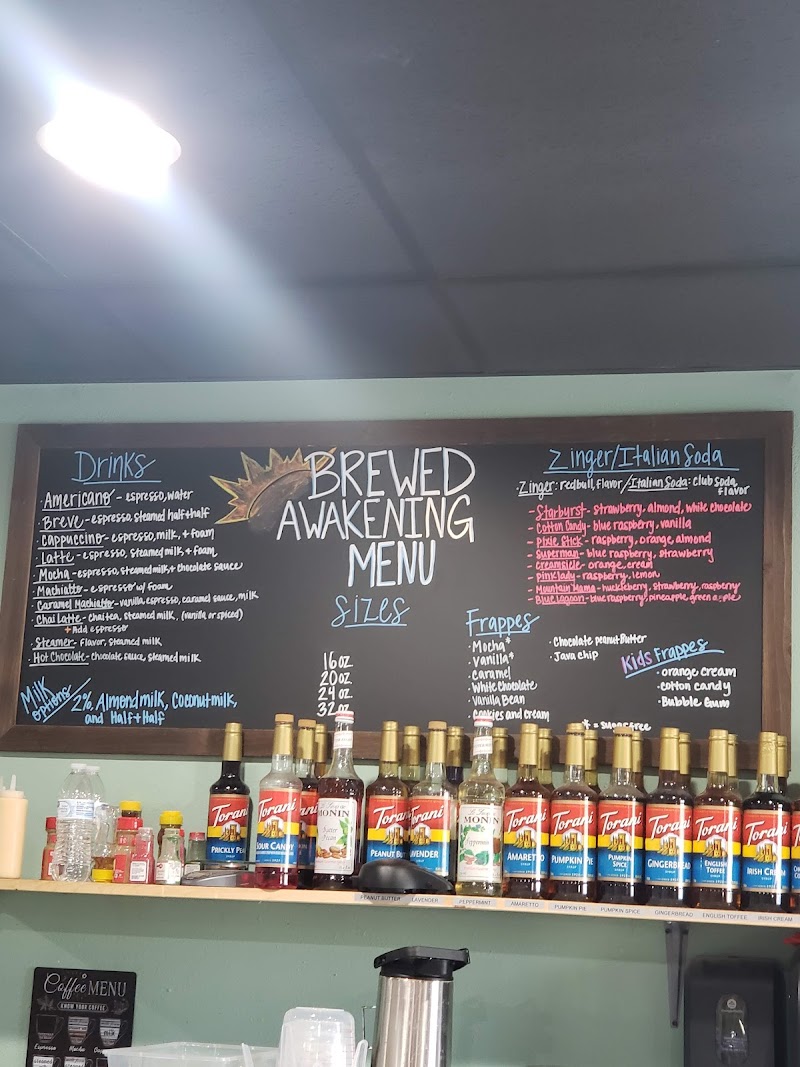 BREWED
AWAKENING
MENU
Drinks
· Americano - espresso, water
· Breve - espresso, steamed half+half
· Cappuccino - espresso, milk, + foam
· Latte - espresso, steamed milk + foam
· Mocha - espresso, steamed milk + chocolate sauce
· Machiatto - espresso w/ foam
· Caramel Machiatto - vanilla, espresso, caramel sauce, milk
· Chai Latte - chai tea, steamed milk, (vanilla or spiced)
+ Add espresso
· Steamer - flavor, steamed milk
· Hot Chocolate - chocolate sauce, steamed milk
Milk
options
2%, Almondmilk, Coconutmilk,
and Half+Half
Sizes
16oz
20oz
24oz
32oz
Zinger/Italian Soda
· Zinger: redbull, flavor / Italian Soda: club soda,
flavor
- Starburst - strawberry, almond, white chocolate
- Cotton Candy - blue raspberry, vanilla
- Pixie Stick - raspberry, orange, almond
- Superman - blue raspberry, strawberry
- Creamsicle - orange, cream
- Pink Lady - raspberry, lemon
- Mountain Mama - huckleberry, strawberry, raspberry
- Blue Lagoon - blue raspberry, pineapple, green apple
Frappes
· Mocha*
· Vanilla*
· Caramel
· White Chocolate
· Vanilla Bean
· Cookies and Cream
· Chocolate peanut butter
· Java chip
Kids Frappes
· orange cream
· cotton candy
· Bubble Gum
* = sugar free
Torani
PRICKLY PE
Torani
OUR CANDY
MONIN
Torani
PEANUT BU
Torani
AVENDER
MONIN
Torani
AMARETTO
Torani
PUMPKIN PIE
Torani
PUMPKIN
SPICE
Torani
GINGERBREAD
Torani
ENGLISH
TOFFEE
Torani
IRISH CREAM
PEANUT BUTTER
LAVENDER
PEPPERMINT
AMARETTO
PUMPKIN PIE
PUMPKIN SPICE
GINGERBREAD
ENGLISH TOFFEE
IRISH CREAM
Coffee MENU
KNOW YOUR COFFEE
Espresso
Mocha